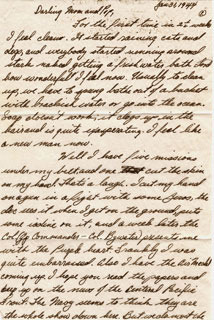 Jan 31, 1944
Darling Mom and Pop,
For the first time in 2 weeks
I feel clean. It started raining cats and
dogs, and everybody started running around
stark naked getting a fresh water bath. And
how wonderful I feel now. Usually to clean
up, we have to go out of a bucket
with brackish water or go into the ocean.
Soap doesn't work, it clogs up in the
and is quite exasperating. I feel like
a new man now.
Well I have five missions
under my belt and one cut the skin
on my hand. That's a laugh. I cut my hand
on a gun in a fight with some Zeros, the
doc sees it when I get on the ground, puts
some iodine on it, and a week later the
Col. presents me
with the Purple Heart. Frankly I was
quite embarrassed. Also I have the Air Medal
coming up. I hope you read the papers and
on the news of the Central Pacific
front. The Navy seems to think they are
the whole show down here. But we